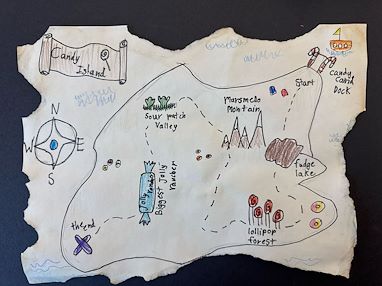 Candy
Island
N
W
E
S
Sour patch
Valley
Marsmelo
Mountain
Start
candy
cane
Dock
fudge
lake
lollipop
forest
Biggest Jolly
rancher
Jolly
rancher
the end